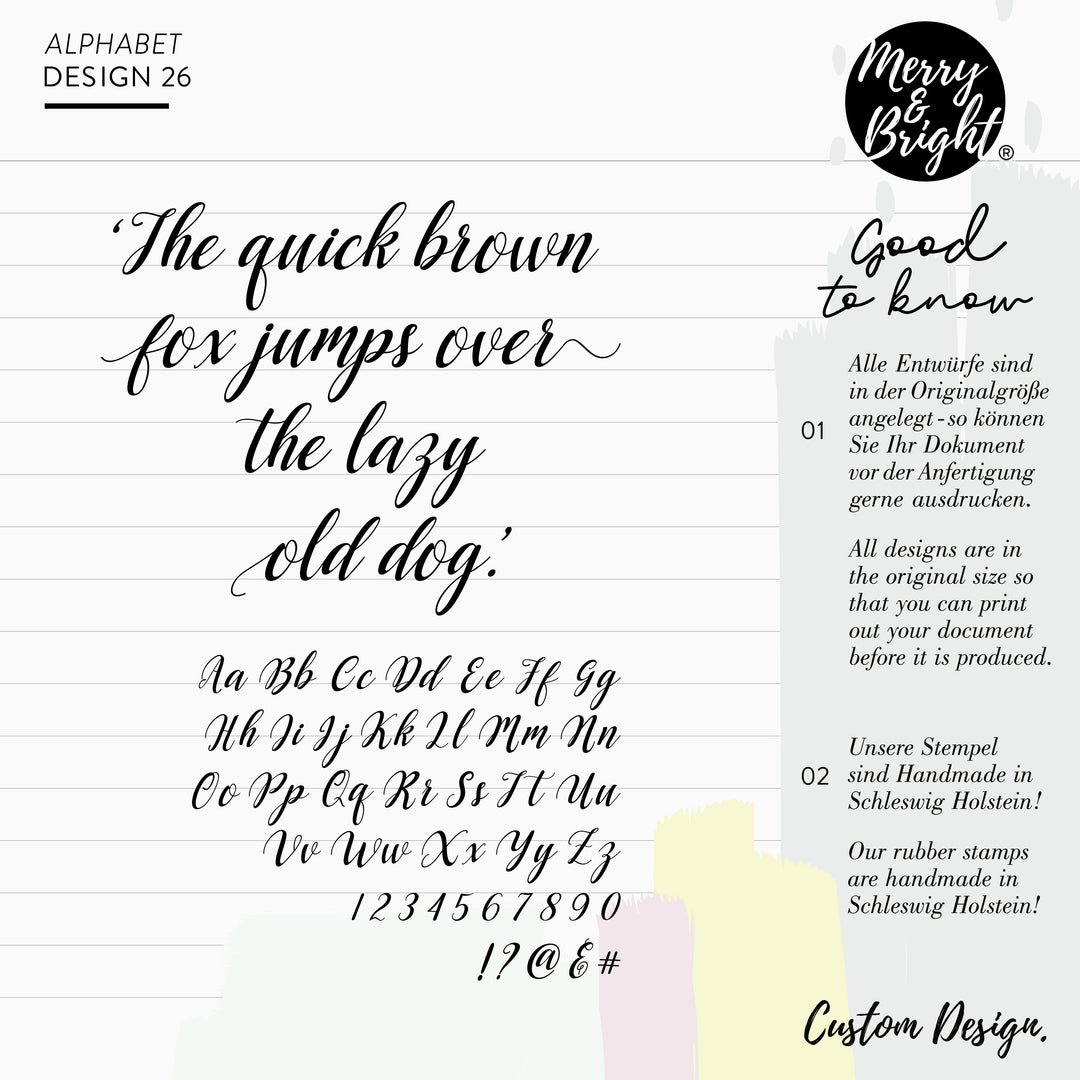 ALPHABET
DESIGN 26
Merry
&
Bright®
‘The quick brown
fox jumps over
the lazy
old dog.’
Aa Bb Cc Dd Ee Ff Gg
Hh Ii Jj Kk Ll Mm Nn
Oo Pp Qq Rr Ss Tt Uu
Vv Ww Xx Yy Zz
1 2 3 4 5 6 7 8 9 0
!? @ & #
Good
to know
01
Alle Entwürfe sind
in der Originalgröße
angelegt - so können
Sie Ihr Dokument
vor der Anfertigung
gerne ausdrucken.
All designs are in
the original size so
that you can print
out your document
before it is produced.
02
Unsere Stempel
sind Handmade in
Schleswig Holstein!
Our rubber stamps
are handmade in
Schleswig Holstein!
Custom Design.